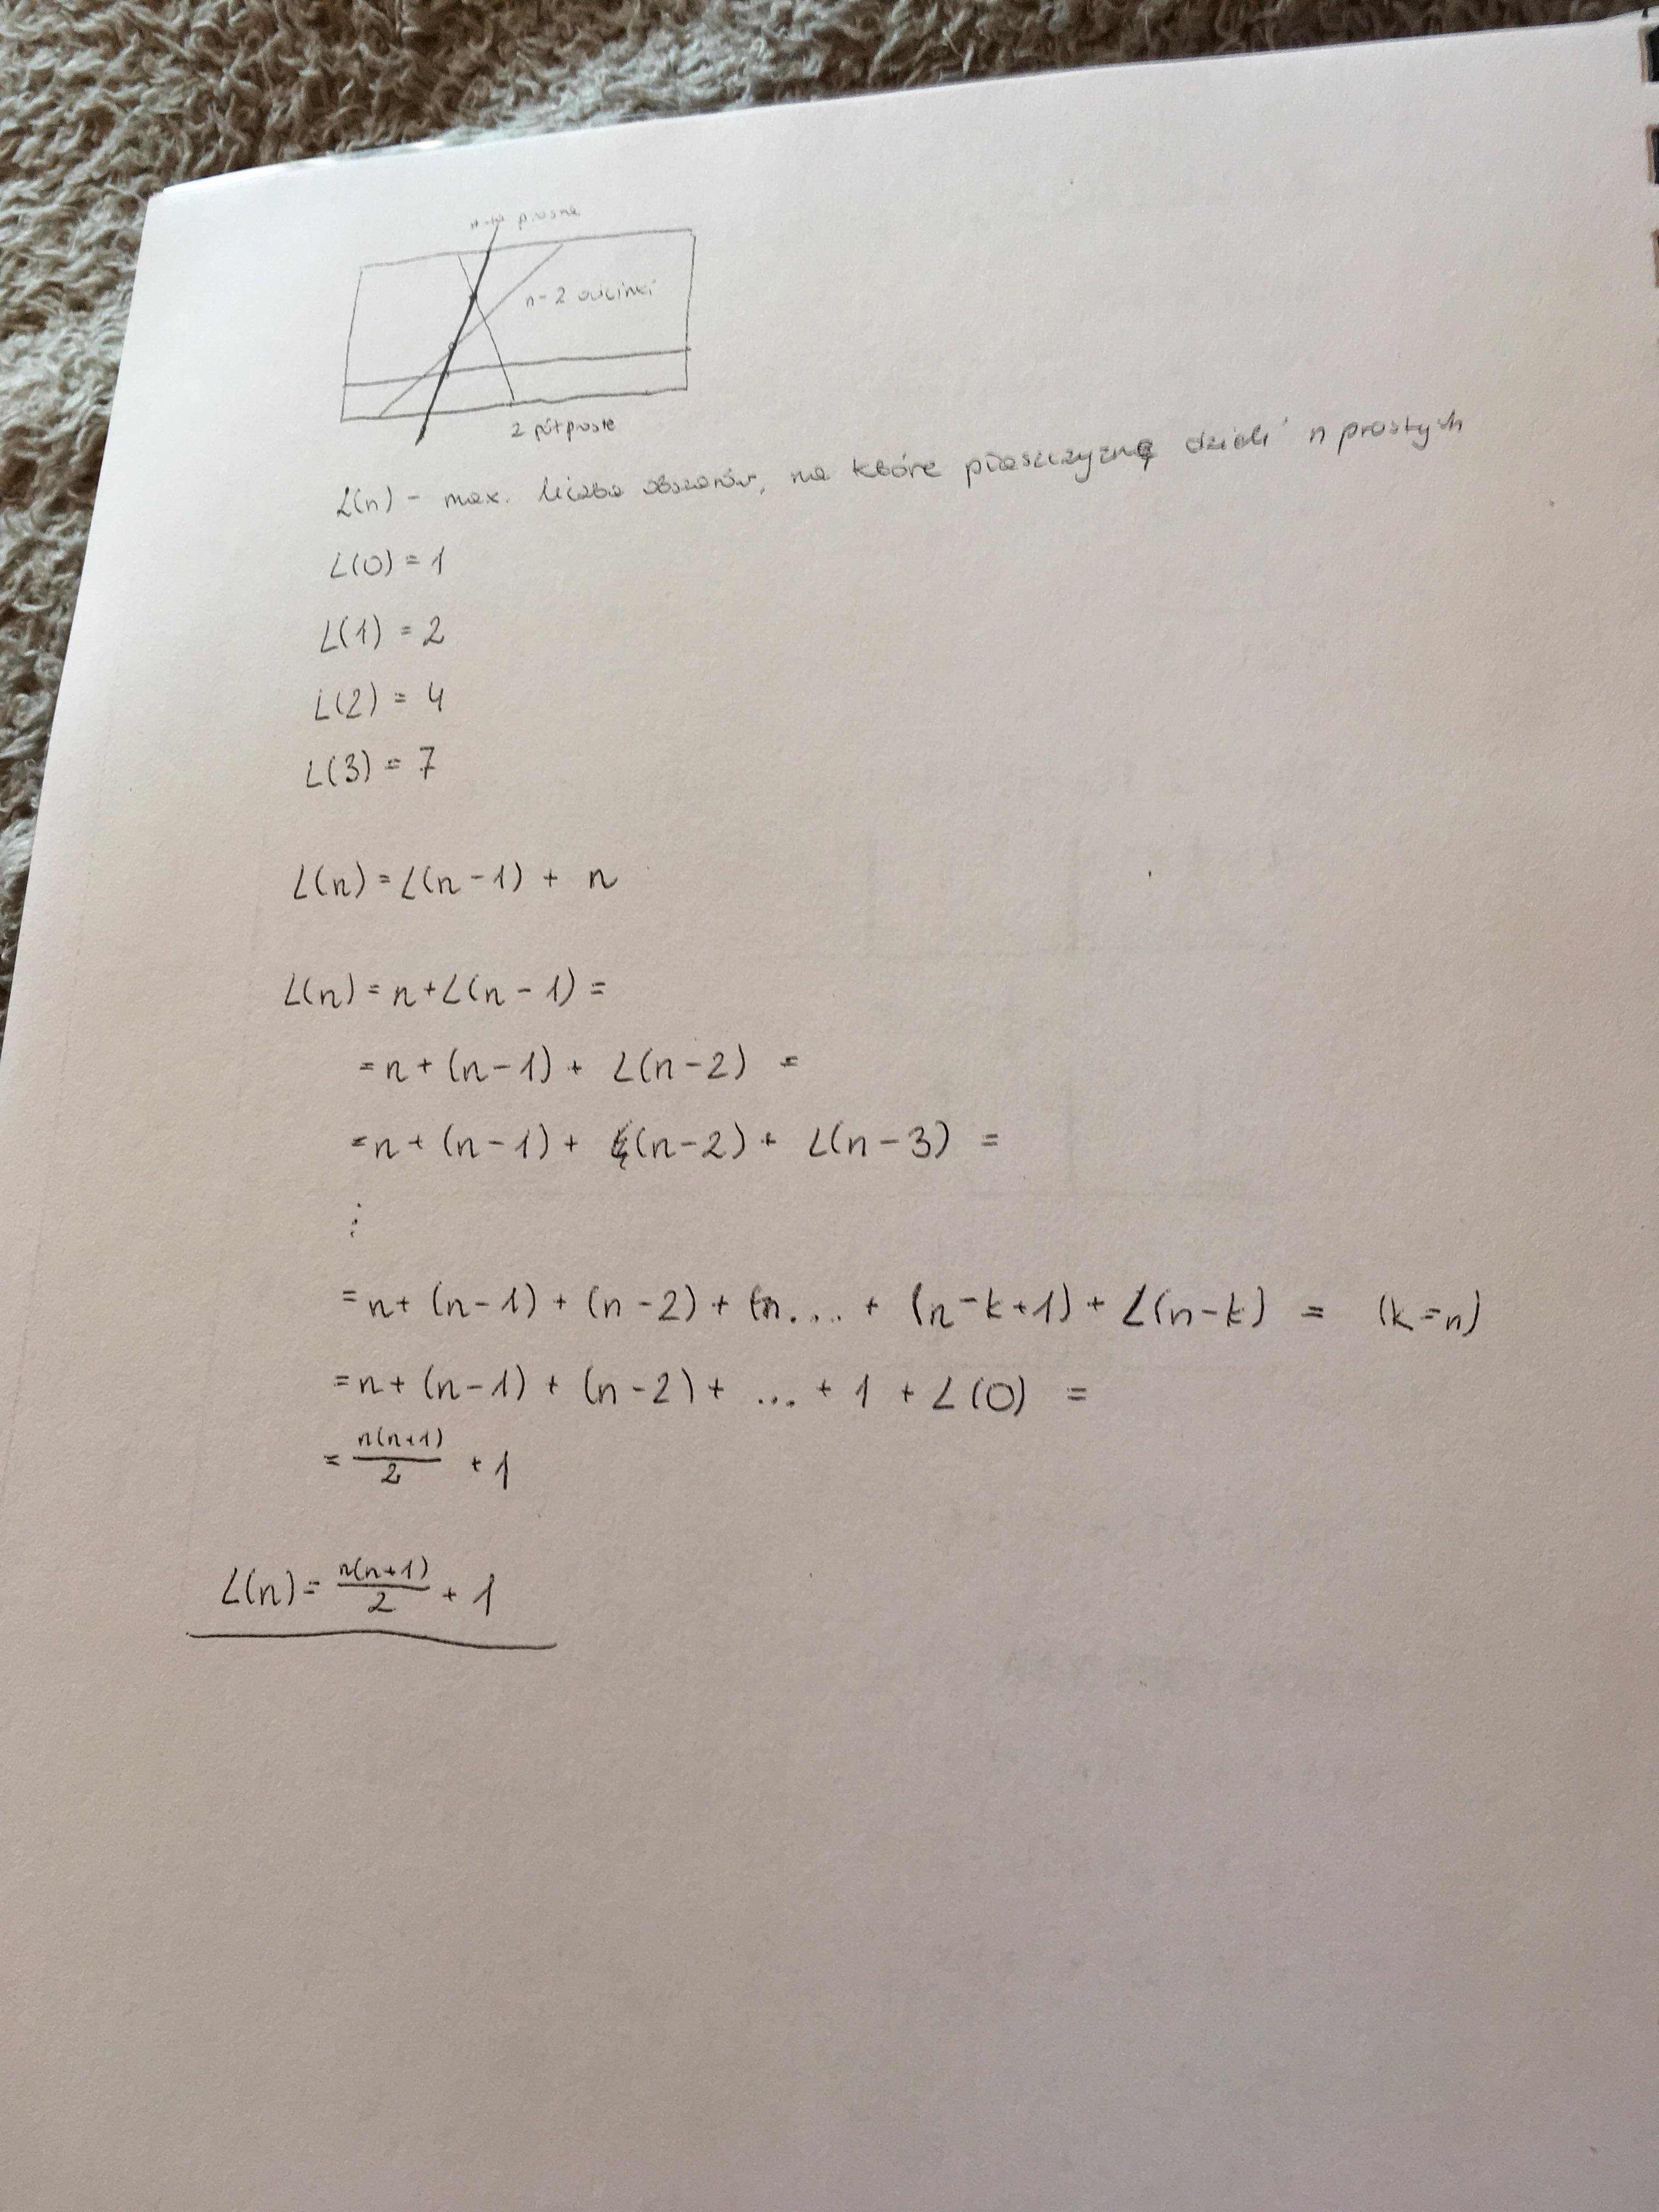 n-ta prosta
n-2 odcinki
2 półproste
L(n) - max. liczba obszarów, na które płaszczyznę dzieli n prostych
L(0) = 1
L(1) = 2
L(2) = 4
L(3) = 7
L(n) = L(n-1) + n
L(n) = n + L(n-1) =
= n + (n-1) + L(n-2) =
= n + (n-1) + (n-2) + L(n-3) =
⋮
= n + (n-1) + (n-2) + ... + (n-k+1) + L(n-k) = (k=n)
= n + (n-1) + (n-2) + ... + 1 + L(0) =
= n(n+1)/2 + 1
L(n) = n(n+1)/2 + 1